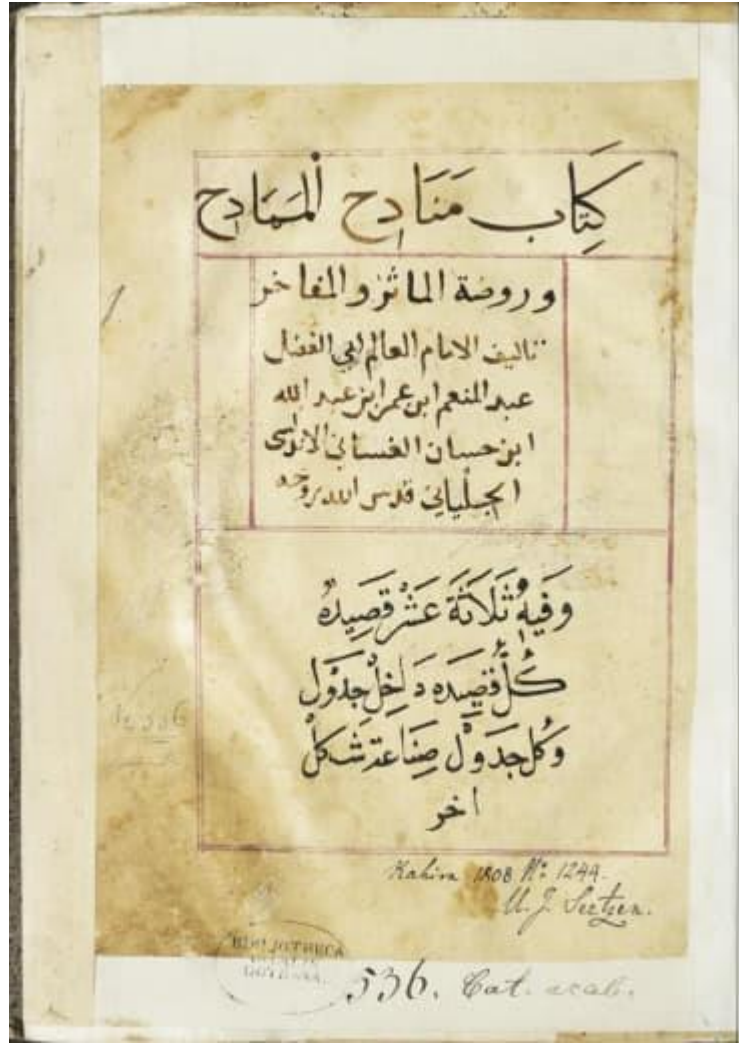 كِتَاب مَنَادِح المَمَادِح
وروضة الماثر والمفاخر
تاليف الامام العالم ابي الفضل
عبد المنعم ابن عمر ابن عبد الله
ابن حسان الغساني الاندلسى
الجيلياني قدس الله روحه
وَفيهِ ثَلَاثَةَ عَشْر قَصِيدهُ
كُلُّ قصِيَده دَاخِلْ جِدْوَل
وَكُل جَدوَلْ صِنَاعة شَكلْ
اخر
Kahira 1808 N: 1244.
U. J. Seetzen.
BIBLIOTHECA
DUCALIS
GOTHANA.
536. Cat. arab.